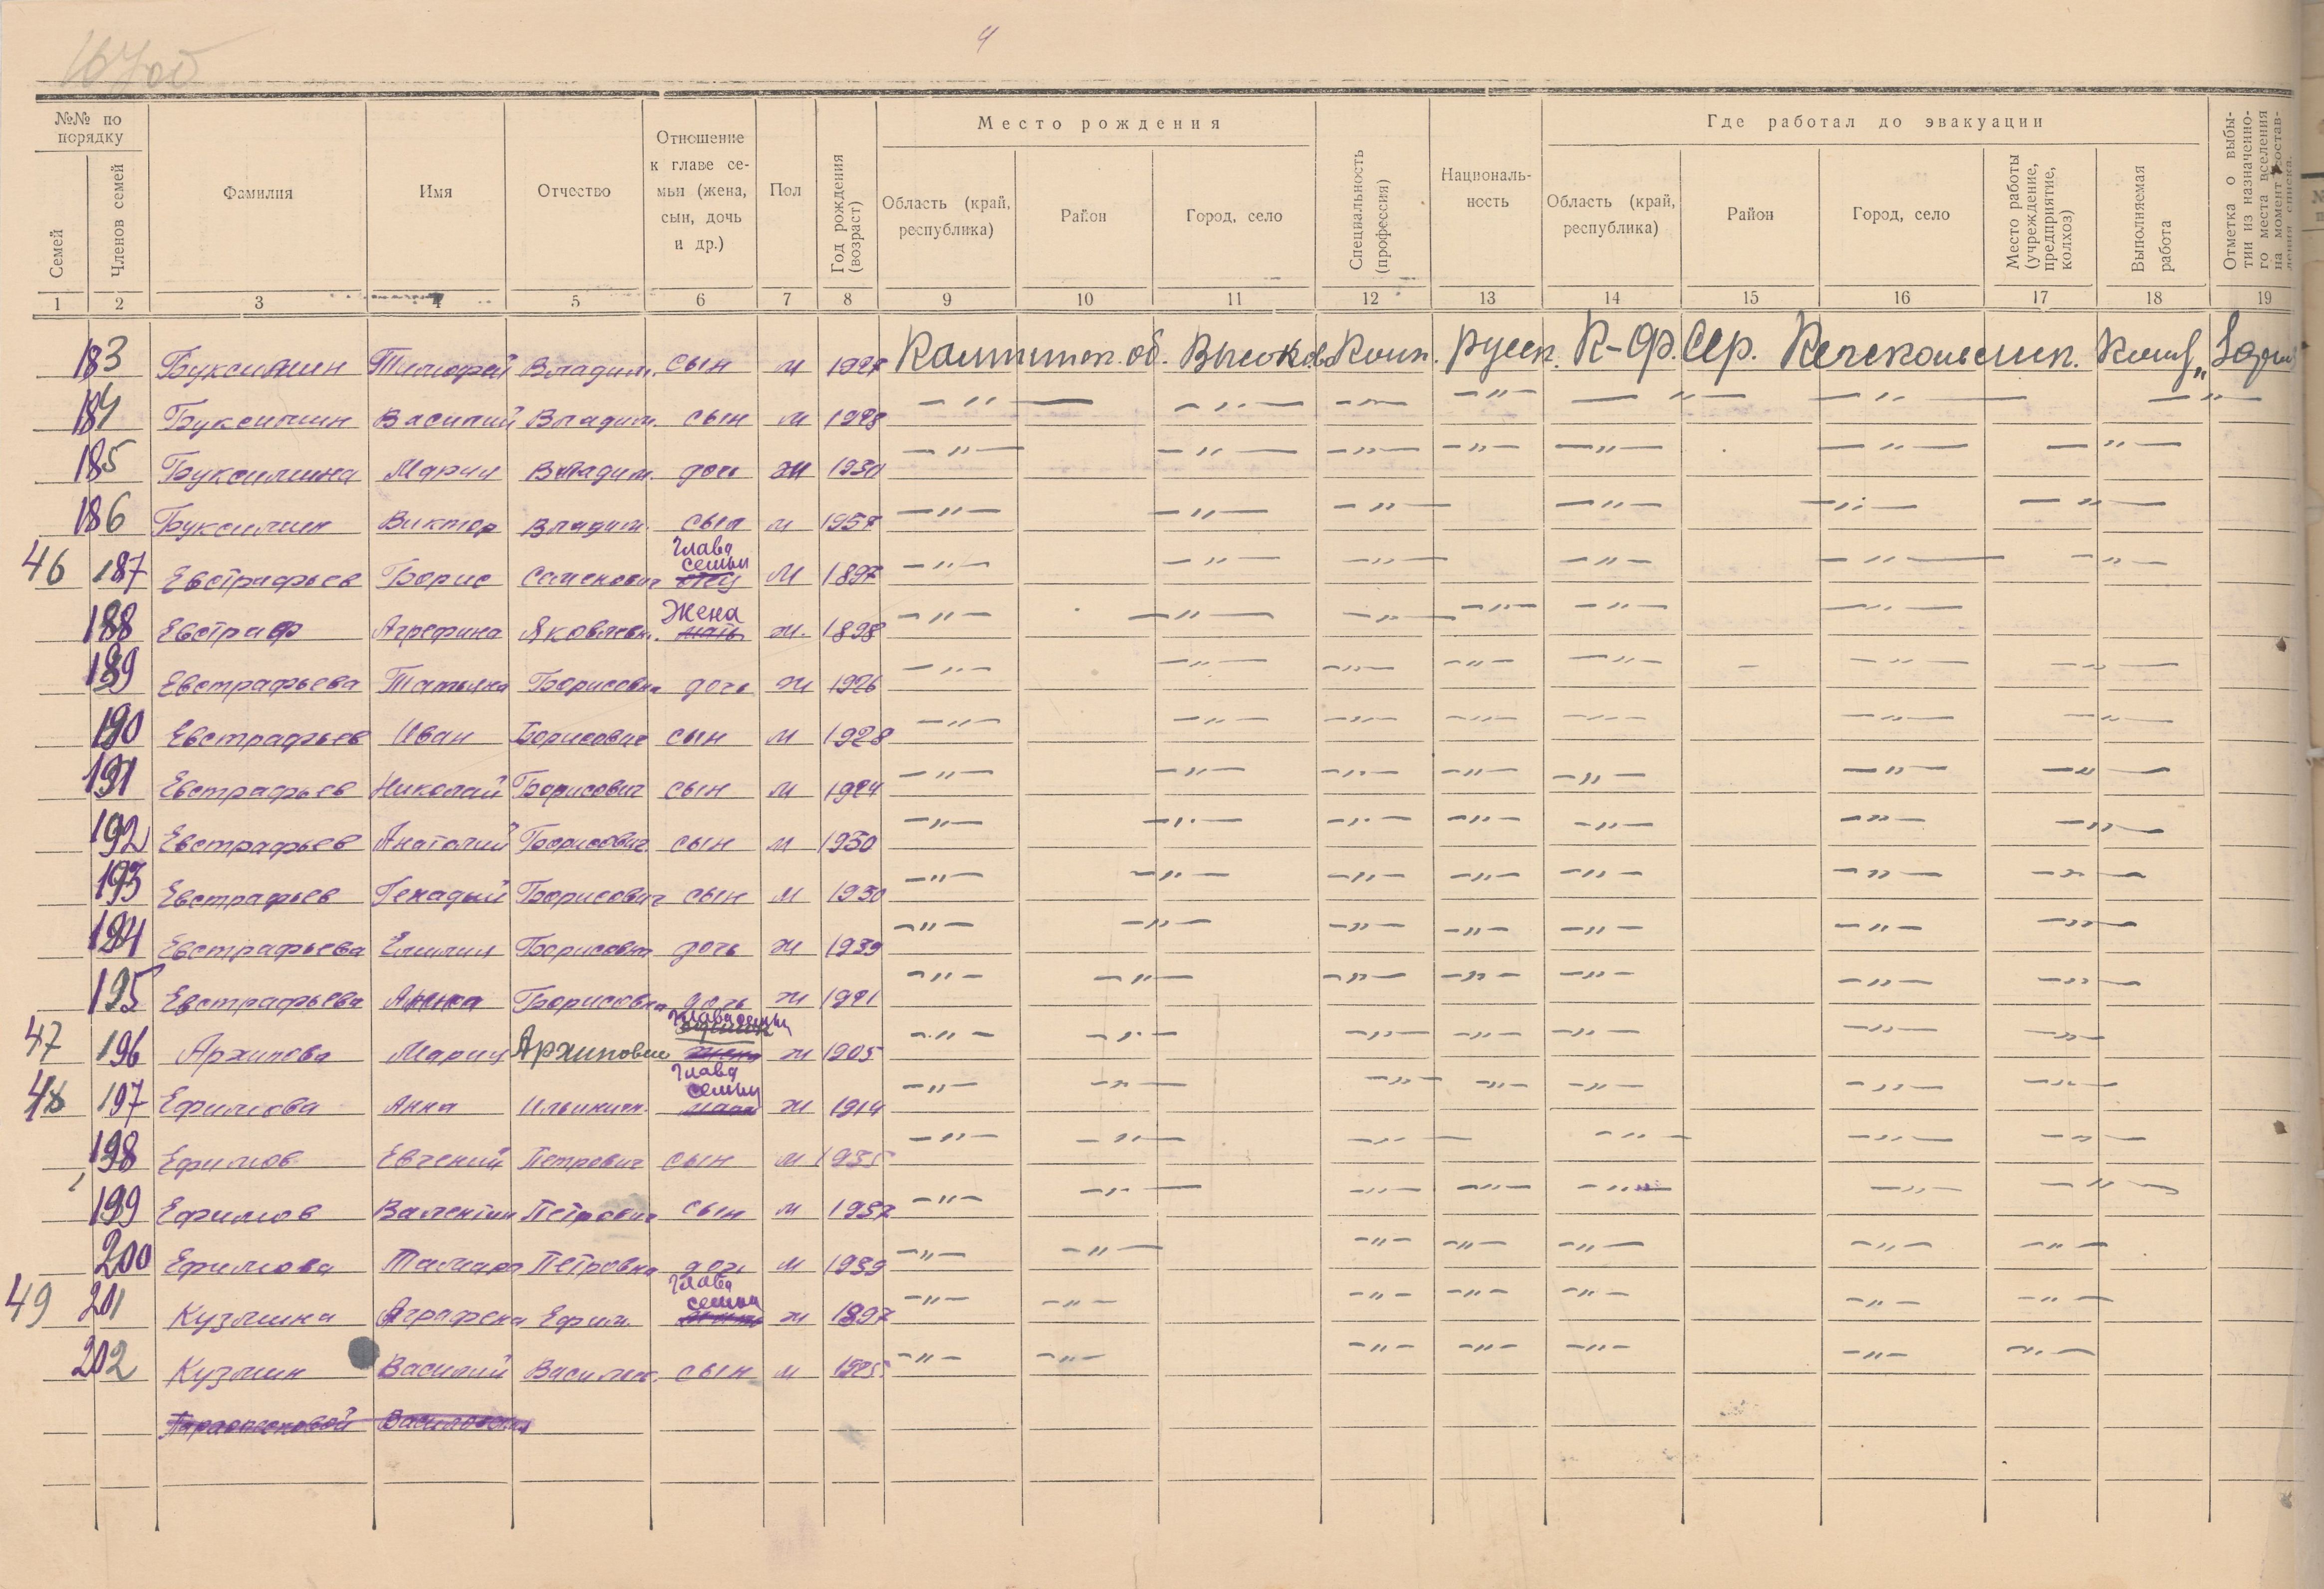 4
№№ по порядку
Семей
Членов семей
Фамилия
Имя
Отчество
Отношение к главе семьи (жена, сын, дочь и др.)
Пол
Год рождения (возраст)
Место рождения
Область (край, республика)
Район
Город, село
Специальность (профессия)
Националь-ность
Где работал до эвакуации
Область (край, республика)
Район
Город, село
Место работы (учреждение, предприятие, колхоз)
Выполняемая работа
Отметка о выбы-тии из назначенно-го места вселения на момент состав-ления списка.
1 2 3 4 5 6 7 8 9 10 11 12 13 14 15 16 17 18 19
183 Буксимин Тимофей Владим. сын м об. русск. К-Ф.ССР.
184 Буксимин Василий Владим. сын м 1928 —"— —"— —"— —"— —"— —"— —"—
185 Буксимина Мария Владим. доч ж 1930 —"— —"— —"— —"— —"— —"— —"—
186 Буксимин Виктор Владим. сын м —"— —"— —"— —"— —"— —"—
46 187 Евстрафьев Борис Семенович Глава семьи м 1897 —"— —"— —"— —"— —"— —"—
188 Евстраф Агрефина Яковлевн. Жена мать ж. 1898 —"— —"— —"— —"— —"— —"—
189 Евстрафьева Татьяна Борисовна дочь ж 1926 —"— —"— —"— —"— —"— —"— —"—
190 Евстрафьев Иван Борисович сын м 1928 —"— —"— —"— —"— —"— —"— —"—
191 Евстрафьев Николай Борисович сын м 1924 —"— —"— —"— —"— —"— —"— —"—
192 Евстрафьев Анатолий Борисович сын м 1930 —"— —"— —"— —"— —"— —"— —"—
193 Евстрафьев Генадий Борисович сын м 1930 —"— —"— —"— —"— —"— —"— —"—
194 Евстрафьева Борисовна дочь ж 1939 —"— —"— —"— —"— —"— —"— —"—
195 Евстрафьева Анна Борисовна дочь ж —"— —"— —"— —"— —"— —"— —"—
47 196 Архипова Мария Архиповна Глава семьи жена ж 1905 —"— —"— —"— —"— —"— —"— —"—
48 197 Ефимова Анна Ильинич. Глава семьи ж 1914 —"— —"— —"— —"— —"— —"— —"—
198 Ефимов Евгений Петрович сын м 1935 —"— —"— —"— —"— —"— —"—
199 Ефимов Валентин Петрович сын м 1937 —"— —"— —"— —"— —"— —"— —"—
200 Ефимова Тамара Петровна доч м 1939 —"— —"— —"— —"— —"— —"— —"—
49 201 Кузмина Аграфена Ефим. Глава семьи ж 1897 —"— —"— —"— —"— —"— —"— —"—
202 Кузмин Василий Василев. сын м 1925 —"— —"— —"— —"— —"— —"— —"—